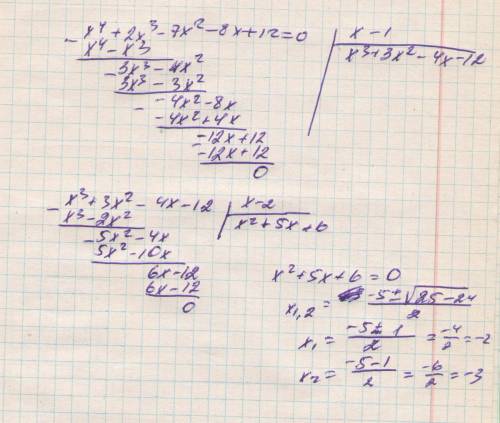 x⁴ + 2x³ - 7x² - 8x + 12 = 0 | x - 1
- x⁴ - x³ | x³ + 3x² - 4x - 12
- 3x³ - 4x²
3x³ - 3x²
- -4x² - 8x
-4x² + 4x
- -12x + 12
-12x + 12
0
- x³ + 3x² - 4x - 12 | x - 2
x³ - 2x² | x² + 5x + 6
- 5x² - 4x
5x² - 10x
6x - 12
6x - 12
0
x² + 5x + 6 = 0
x₁,₂ = (-5 ± √(25 - 24))/2
x₁ = (-5 + 1)/2 = -4/2 = -2
x₂ = (-5 - 1)/2 = -6/2 = -3